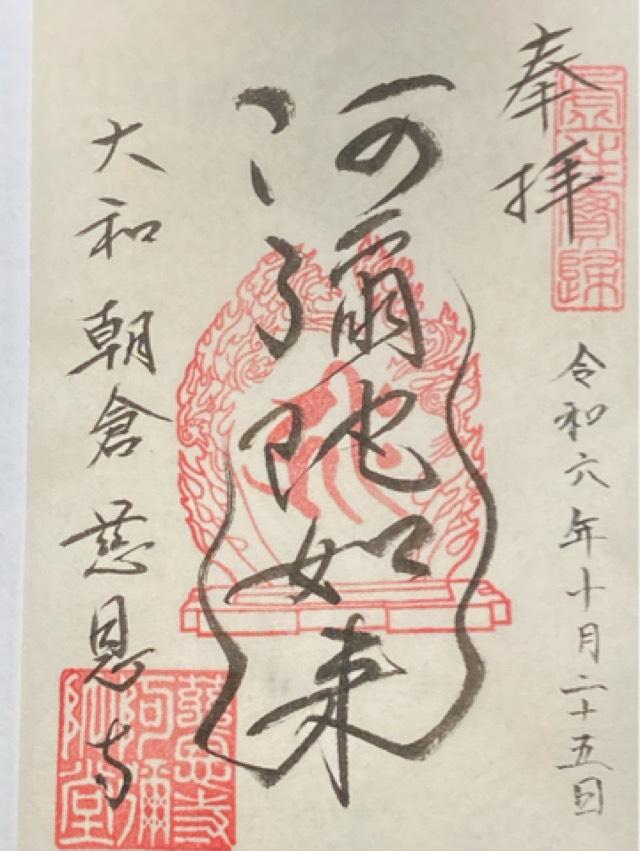 奉拝
令和六年十月二十五日
阿彌陀如来
大和朝倉慈恩寺
慈恩寺
阿彌
陀堂